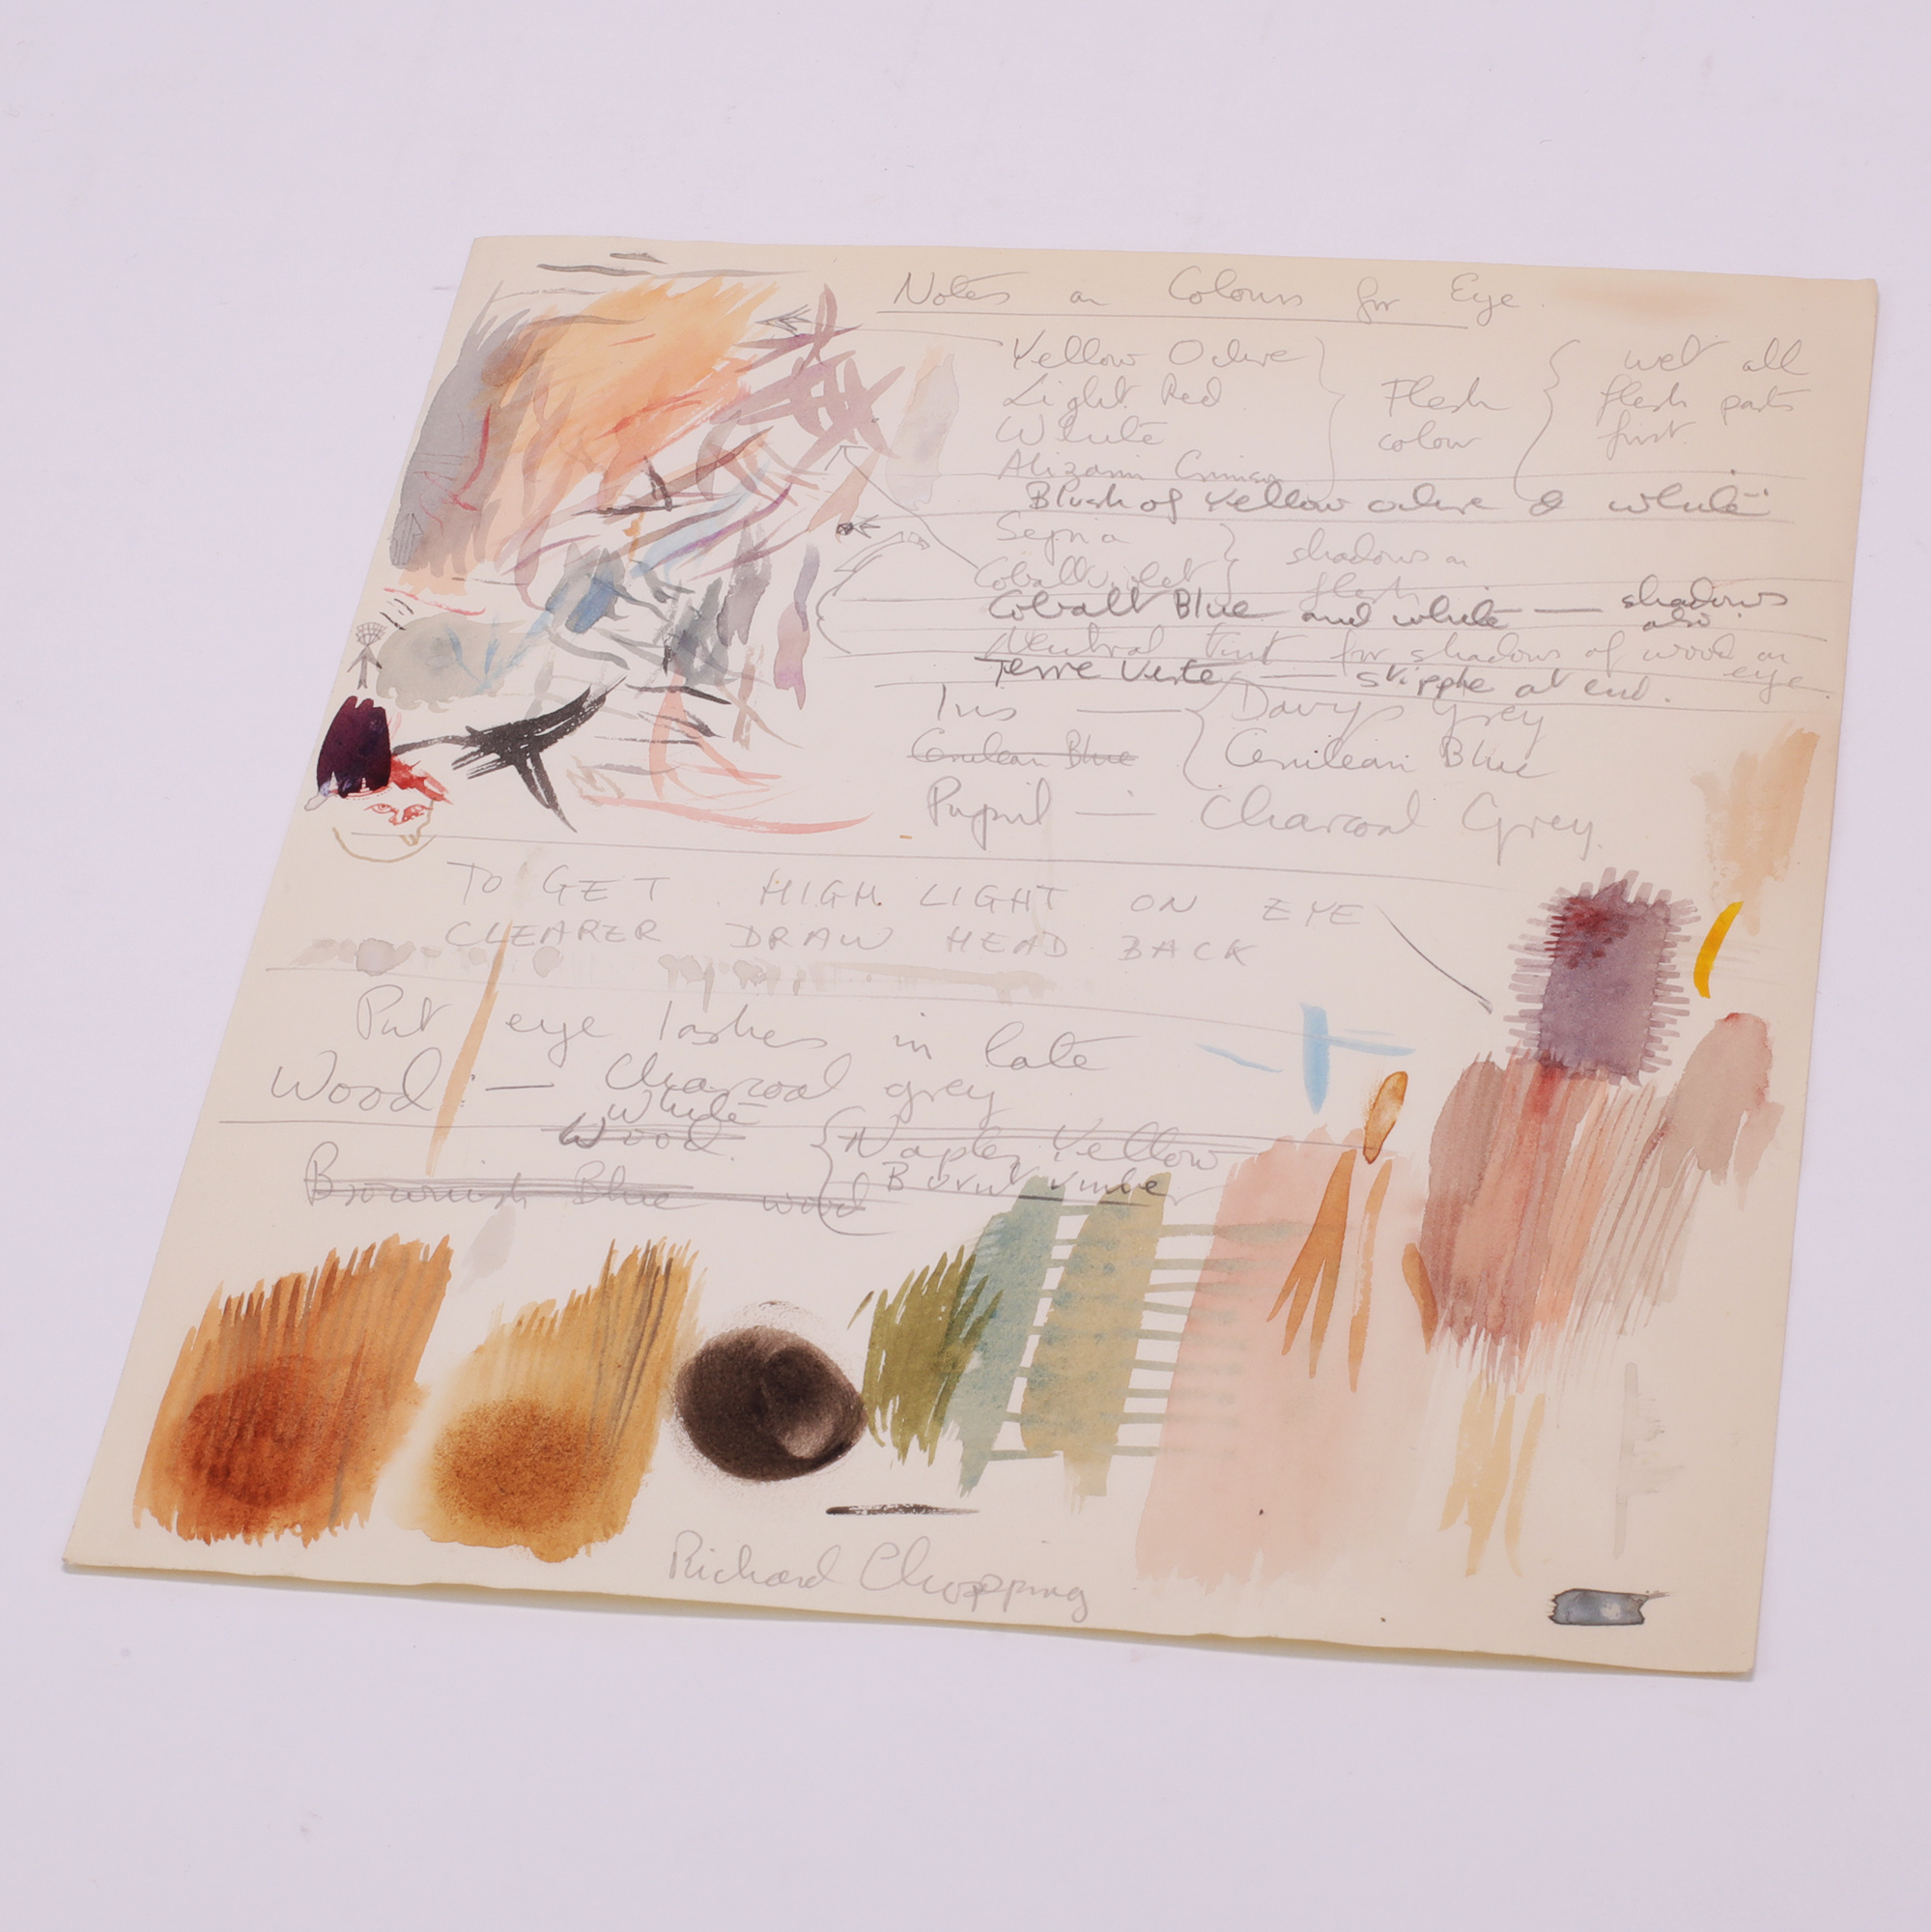 Notes on Colours for Eye
Yellow Ochre
Light Red
White
Alizarin Crimson
Flesh
colour
wet all
flesh parts
first.
Blush of Yellow ochre & white
Sepia
Cobalt violet
shadows on
flesh
Cobalt Blue and white — shadows
also.
Neutral tint for shadows of wood on
eye.
Terre Verte — stipple at end.
Iris — Davys Grey
Cerulean Blue Cerulean Blue
Pupil — Charcoal Grey
TO GET HIGH LIGHT ON EYE
CLEARER DRAW HEAD BACK
Put eye lashes in late
Wood :— Charcoal grey
White
Wood. Naples Yellow
Brownish Blue wood Burnt umber
Richard Chopping